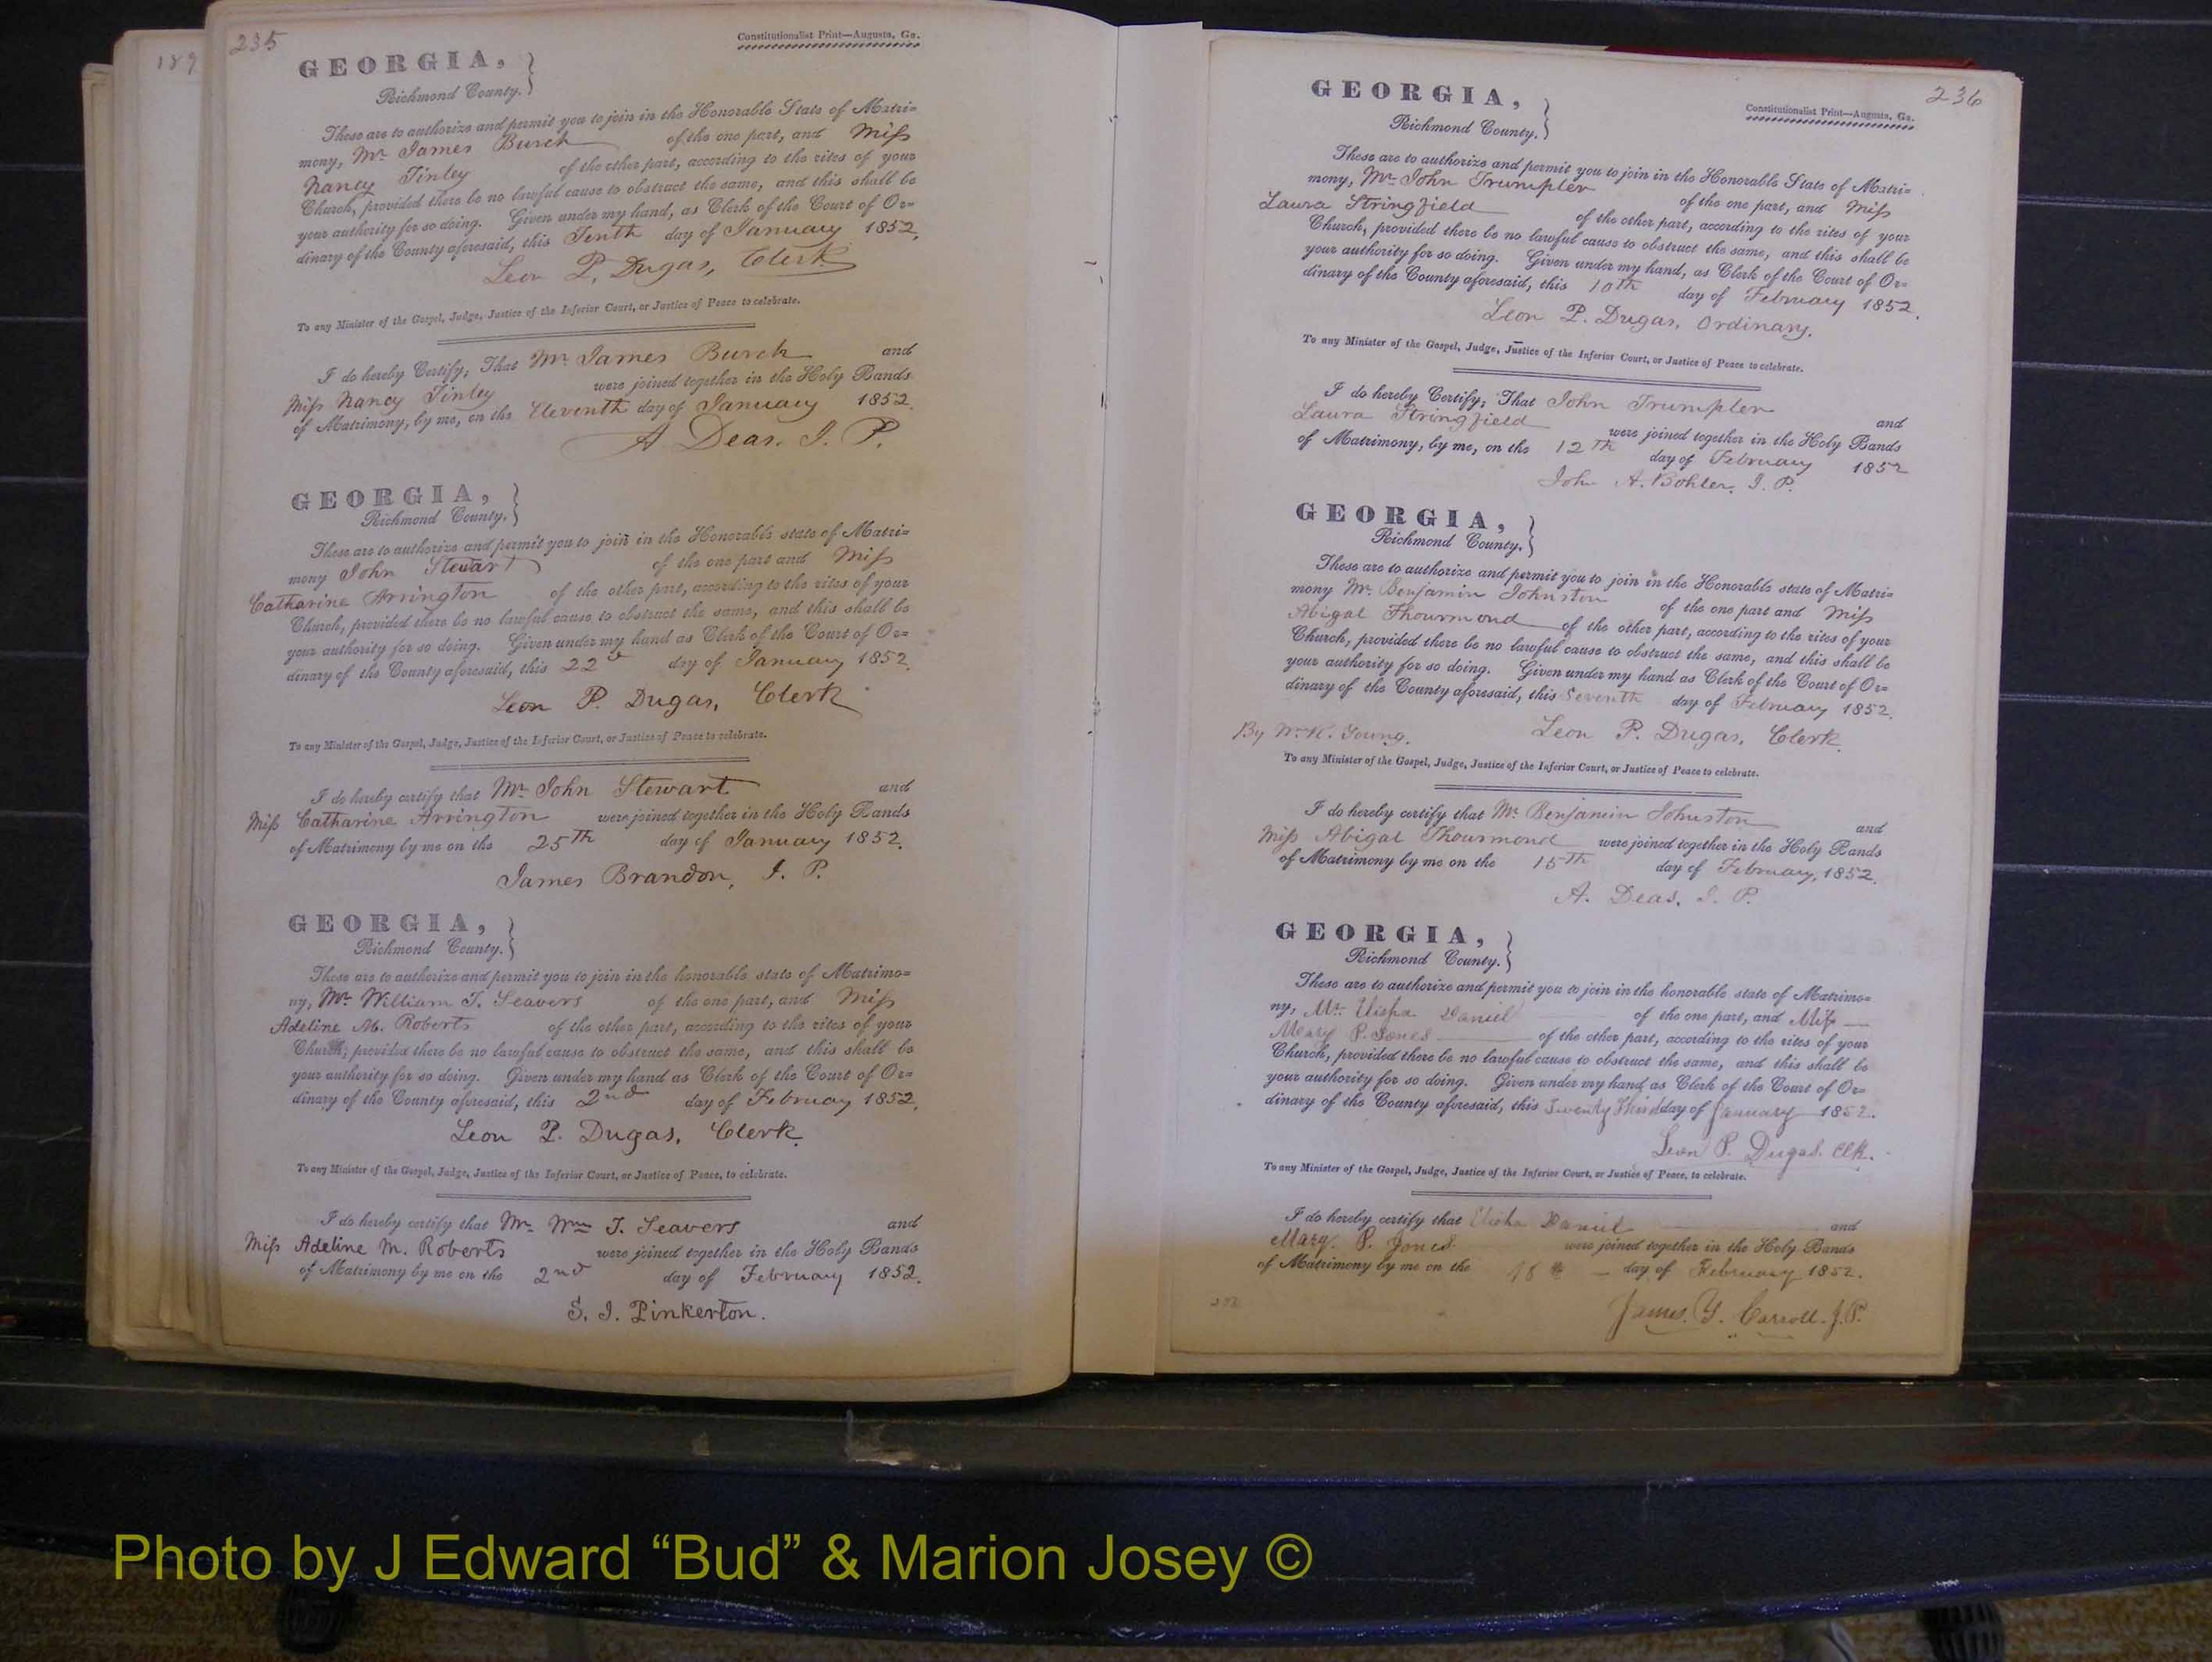 189
235
Constitutionalist Print—Augusta, Ga.
GEORGIA,
Richmond County.
These are to authorize and permit you to join in the Honorable State of Matri=
mony, Mr. James Burch of the one part, and Miss
Nancy Tinley of the other part, according to the rites of your
Church, provided there be no lawful cause to obstruct the same, and this shall be
your authority for so doing. Given under my hand, as Clerk of the Court of Or=
dinary of the County aforesaid, this Tenth day of January 1852.
Leon P. Dugas, Clerk
To any Minister of the Gospel, Judge, Justice of the Inferior Court, or Justice of Peace to celebrate.
I do hereby Certify; That Mr. James Burch and
Miss Nancy Tinley were joined together in the Holy Bands
of Matrimony, by me, on the Eleventh day of January 1852.
A Deas. J. P.
GEORGIA,
Richmond County.
These are to authorize and permit you to join in the Honorable state of Matri=
mony John Stewart of the one part and Miss
Catharine Arrington of the other part, according to the rites of your
Church, provided there be no lawful cause to obstruct the same, and this shall be
your authority for so doing. Given under my hand as Clerk of the Court of Or=
dinary of the County aforesaid, this 22d day of January 1852.
Leon P. Dugas, Clerk
To any Minister of the Gospel, Judge, Justice of the Inferior Court, or Justice of Peace to celebrate.
I do hereby certify that Mr. John Stewart and
Miss Catharine Arrington were joined together in the Holy Bands
of Matrimony by me on the 25th day of January 1852.
James Brandon, J. P.
GEORGIA,
Richmond County.
These are to authorize and permit you to join in the honorable state of Matrimo=
ny, Mr. William T. Seavers of the one part, and Miss
Adeline M. Roberts of the other part, according to the rites of your
Church, provided there be no lawful cause to obstruct the same, and this shall be
your authority for so doing. Given under my hand as Clerk of the Court of Or=
dinary of the County aforesaid, this 2nd day of February 1852.
Leon P. Dugas, Clerk.
To any Minister of the Gospel, Judge, Justice of the Inferior Court, or Justice of Peace, to celebrate.
I do hereby certify that Mr. Wm T. Seavers and
Miss Adeline M. Roberts were joined together in the Holy Bands
of Matrimony by me on the 2nd day of February 1852.
S. J. Pinkerton.
236
Constitutionalist Print—Augusta, Ga.
GEORGIA,
Richmond County.
These are to authorize and permit you to join in the Honorable State of Matri=
mony, Mr. John Trumpler of the one part, and Miss
Laura Stringfield of the other part, according to the rites of your
Church, provided there be no lawful cause to obstruct the same, and this shall be
your authority for so doing. Given under my hand, as Clerk of the Court of Or=
dinary of the County aforesaid, this 10th day of February 1852.
Leon P. Dugas, Ordinary.
To any Minister of the Gospel, Judge, Justice of the Inferior Court, or Justice of Peace to celebrate.
I do hereby Certify; That John Trumpler and
Laura Stringfield were joined together in the Holy Bands
of Matrimony, by me, on the 12th day of February 1852
John A. Bohler. J. P.
GEORGIA,
Richmond County.
These are to authorize and permit you to join in the Honorable state of Matri=
mony Mr. Benjamin Johnston of the one part and Miss
Abigal Thourmond of the other part, according to the rites of your
Church, provided there be no lawful cause to obstruct the same, and this shall be
your authority for so doing. Given under my hand as Clerk of the Court of Or=
dinary of the County aforesaid, this Seventh day of February 1852.
By Wm R. Young. Leon P. Dugas, Clerk.
To any Minister of the Gospel, Judge, Justice of the Inferior Court, or Justice of Peace to celebrate.
I do hereby certify that Mr. Benjamin Johnston and
Miss Abigal Thourmond were joined together in the Holy Bands
of Matrimony by me on the 15th day of February, 1852.
A. Deas, J. P.
GEORGIA,
Richmond County.
These are to authorize and permit you to join in the honorable state of Matrimo=
ny, Mr. Elisha Daniel of the one part, and Miss
Mary P. Jones of the other part, according to the rites of your
Church, provided there be no lawful cause to obstruct the same, and this shall be
your authority for so doing. Given under my hand as Clerk of the Court of Or=
dinary of the County aforesaid, this Twenty Third day of January 1852.
Leon P. Dugas. Clk.
To any Minister of the Gospel, Judge, Justice of the Inferior Court, or Justice of Peace, to celebrate.
I do hereby certify that Elisha Daniel and
Mary. P. Jones were joined together in the Holy Bands
of Matrimony by me on the day of February 1852.
James. Y. Carroll. J. P.
Photo by J Edward “Bud” & Marion Josey ©